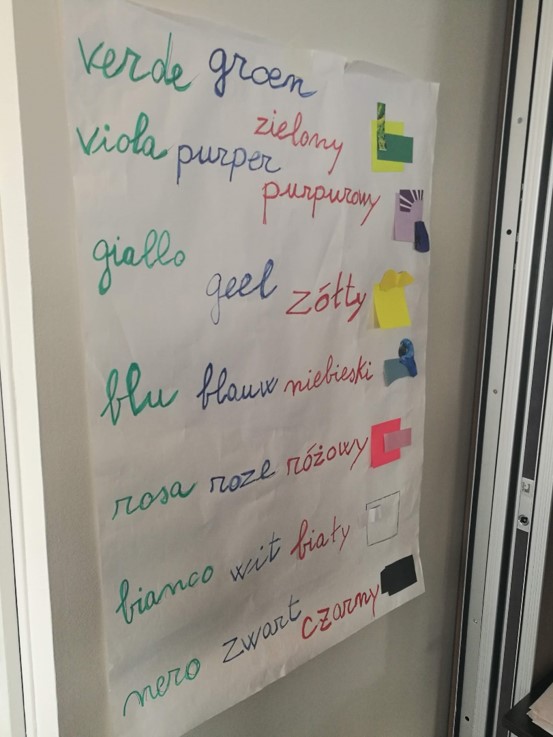 verde groen
zielony
viola purper
purpurowy
giallo
geel żółty
blu blauw niebieski
rosa roze różowy
bianco wit biały
nero zwart czarny